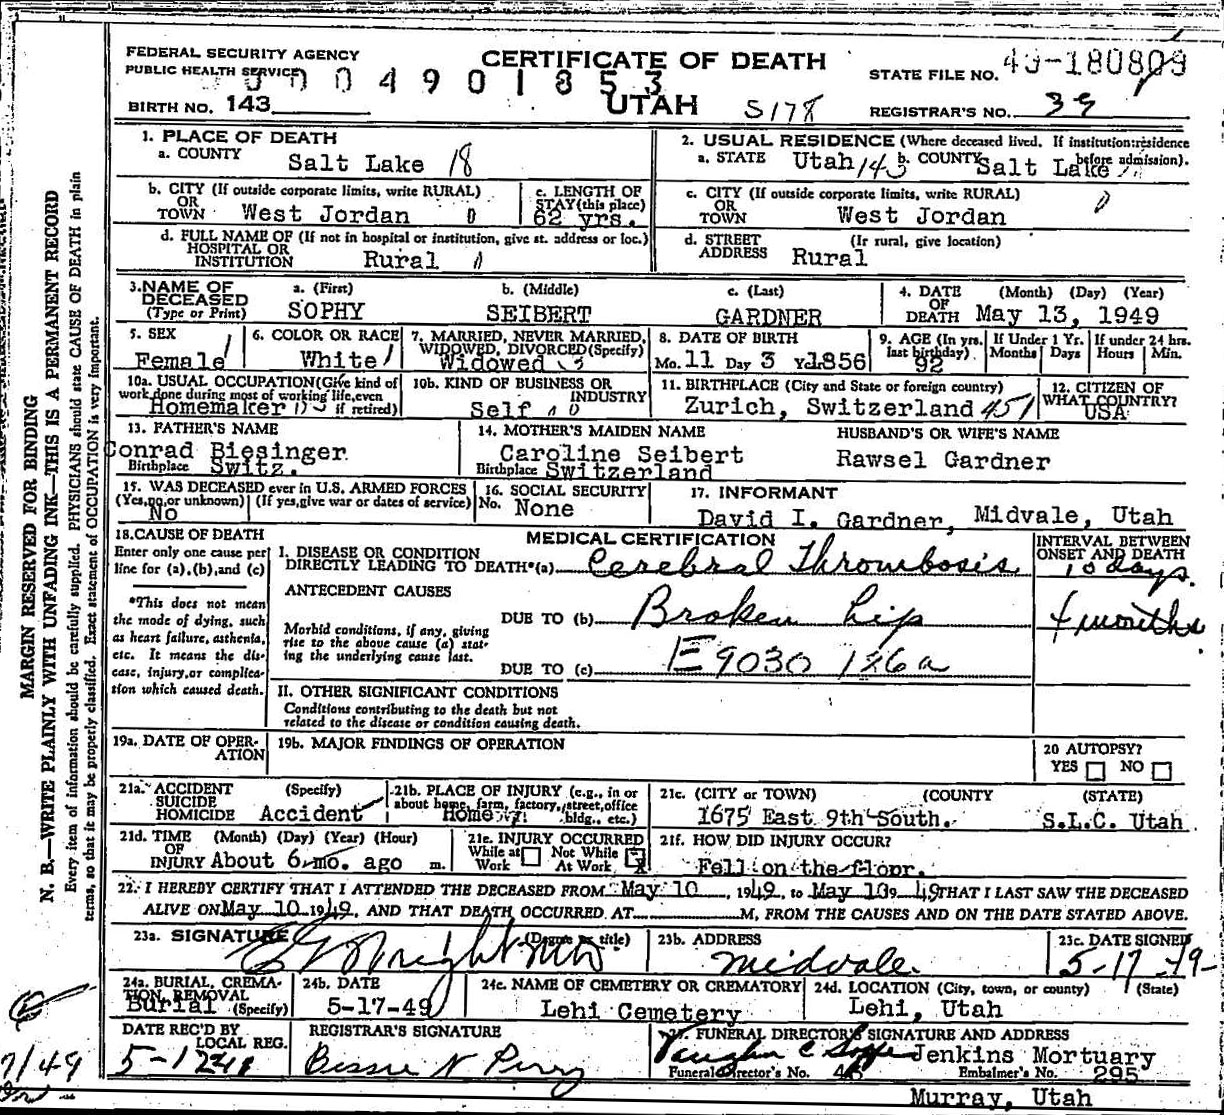 FEDERAL SECURITY AGENCY
PUBLIC HEALTH SERVICE
CERTIFICATE OF DEATH
STATE FILE NO. 49-180809
0004901853
BIRTH NO. 143
UTAH
S178
REGISTRAR'S NO. 39
1. PLACE OF DEATH
a. COUNTY Salt Lake 18
2. USUAL RESIDENCE (Where deceased lived. If institution:residence before admission).
a. STATE Utah 143 b. COUNTY Salt Lake
b. CITY (If outside corporate limits, write RURAL) OR TOWN West Jordan 0
c. LENGTH OF STAY(this place) 62 yrs.
c. CITY (If outside corporate limits, write RURAL) OR TOWN West Jordan 0
d. FULL NAME OF (If not in hospital or institution, give st. address or loc.) HOSPITAL OR INSTITUTION Rural
d. STREET ADDRESS (Ir rural, give location) Rural
3. NAME OF DECEASED (Type or Print)
a. (First) SOPHY
b. (Middle) SEIBERT
c. (Last) GARDNER
4. DATE OF DEATH (Month) (Day) (Year) May 13, 1949
5. SEX Female 1
6. COLOR OR RACE White 1
7. MARRIED, NEVER MARRIED, WIDOWED, DIVORCED(Specify) Widowed 3
8. DATE OF BIRTH Mo. 11 Day 3 Yr. 1856
9. AGE (In yrs. last birthday) 92
If Under 1 Yr. Months Days
If under 24 hrs. Hours Min.
10a. USUAL OCCUPATION(Give kind of work done during most of working life, even if retired) Homemaker
10b. KIND OF BUSINESS OR INDUSTRY Self
11. BIRTHPLACE (City and State or foreign country) Zurich, Switzerland 451
12. CITIZEN OF WHAT COUNTRY? USA
13. FATHER'S NAME
Conrad Biesinger
Birthplace Switz.
14. MOTHER'S MAIDEN NAME
Caroline Seibert
Birthplace Switzerland
HUSBAND'S OR WIFE'S NAME
Rawsel Gardner
15. WAS DECEASED ever in U.S. ARMED FORCES
(Yes,no,or unknown) No
(If yes,give war or dates of service)
16. SOCIAL SECURITY No. None
17. INFORMANT
David I. Gardner, Midvale, Utah
18.CAUSE OF DEATH
Enter only one cause per line for (a),(b),and (c)
*This does not mean the mode of dying, such as heart failure, asthenia, etc. It means the disease, injury,or complication which caused death.
MEDICAL CERTIFICATION
INTERVAL BETWEEN ONSET AND DEATH
I. DISEASE OR CONDITION DIRECTLY LEADING TO DEATH*(a) Cerebral Thrombosis 10 days.
ANTECEDENT CAUSES
DUE TO (b) Broken hip 4 months
Morbid conditions, if any, giving rise to the above cause (a) stating the underlying cause last.
DUE TO (c) E9030 186a
II. OTHER SIGNIFICANT CONDITIONS
Conditions contributing to the death but not related to the disease or condition causing death.
19a. DATE OF OPERATION
19b. MAJOR FINDINGS OF OPERATION
20 AUTOPSY?
YES NO
21a. ACCIDENT SUICIDE HOMICIDE (Specify) Accident
21b. PLACE OF INJURY (e.g., in or about home, farm, factory, street, office bldg., etc.) Home
21c. (CITY or TOWN) (COUNTY) (STATE)
1675 East 9th South. S.L.C. Utah
21d. TIME OF INJURY (Month) (Day) (Year) (Hour) About 6 mo. ago m.
21e. INJURY OCCURRED
While at Work Not While At Work X
21f. HOW DID INJURY OCCUR?
Fell on the floor.
22. I HEREBY CERTIFY THAT I ATTENDED THE DECEASED FROM May 10, 1949, to May 10, 1949 THAT I LAST SAW THE DECEASED
ALIVE ON May 10 1949, AND THAT DEATH OCCURRED AT M, FROM THE CAUSES AND ON THE DATE STATED ABOVE.
23a. SIGNATURE (Degree or title)
Wright MD
23b. ADDRESS
Midvale.
23c. DATE SIGNED
5-17-49-
24a. BURIAL, CREMATION, REMOVAL (Specify) Burial
24b. DATE 5-17-49
24c. NAME OF CEMETERY OR CREMATORY Lehi Cemetery
24d. LOCATION (City, town, or county) (State) Lehi, Utah
DATE REC'D BY LOCAL REG.
REGISTRAR'S SIGNATURE
Bessie N Perry
25. FUNERAL DIRECTOR'S SIGNATURE AND ADDRESS
Vaughn C Jenkins Mortuary
Funeral Director's No. Embalmer's No. 295
Murray, Utah
MARGIN RESERVED FOR BINDING
N. B.—WRITE PLAINLY WITH UNFADING INK—THIS IS A PERMANENT RECORD
Every item of information should be carefully supplied. PHYSICIANS should state CAUSE OF DEATH in plain
terms, so that it may be properly classified. Exact statement of OCCUPATION is very important.
7/49